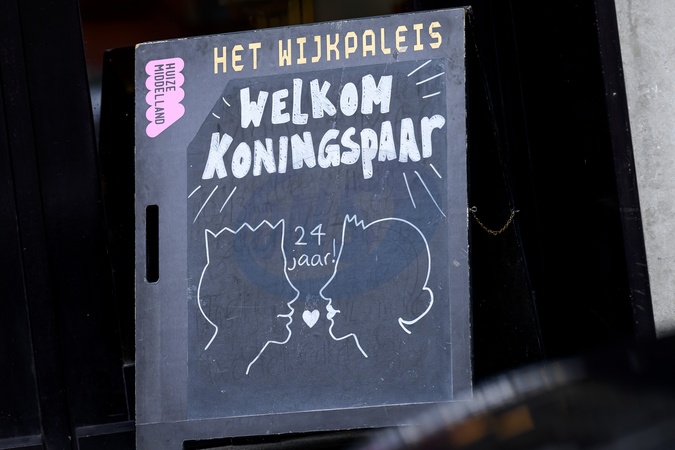 HET WIJKPALEIS
HUIZE
MIDDELLAND
WELKOM
KONINGSPAAR
24
jaar!